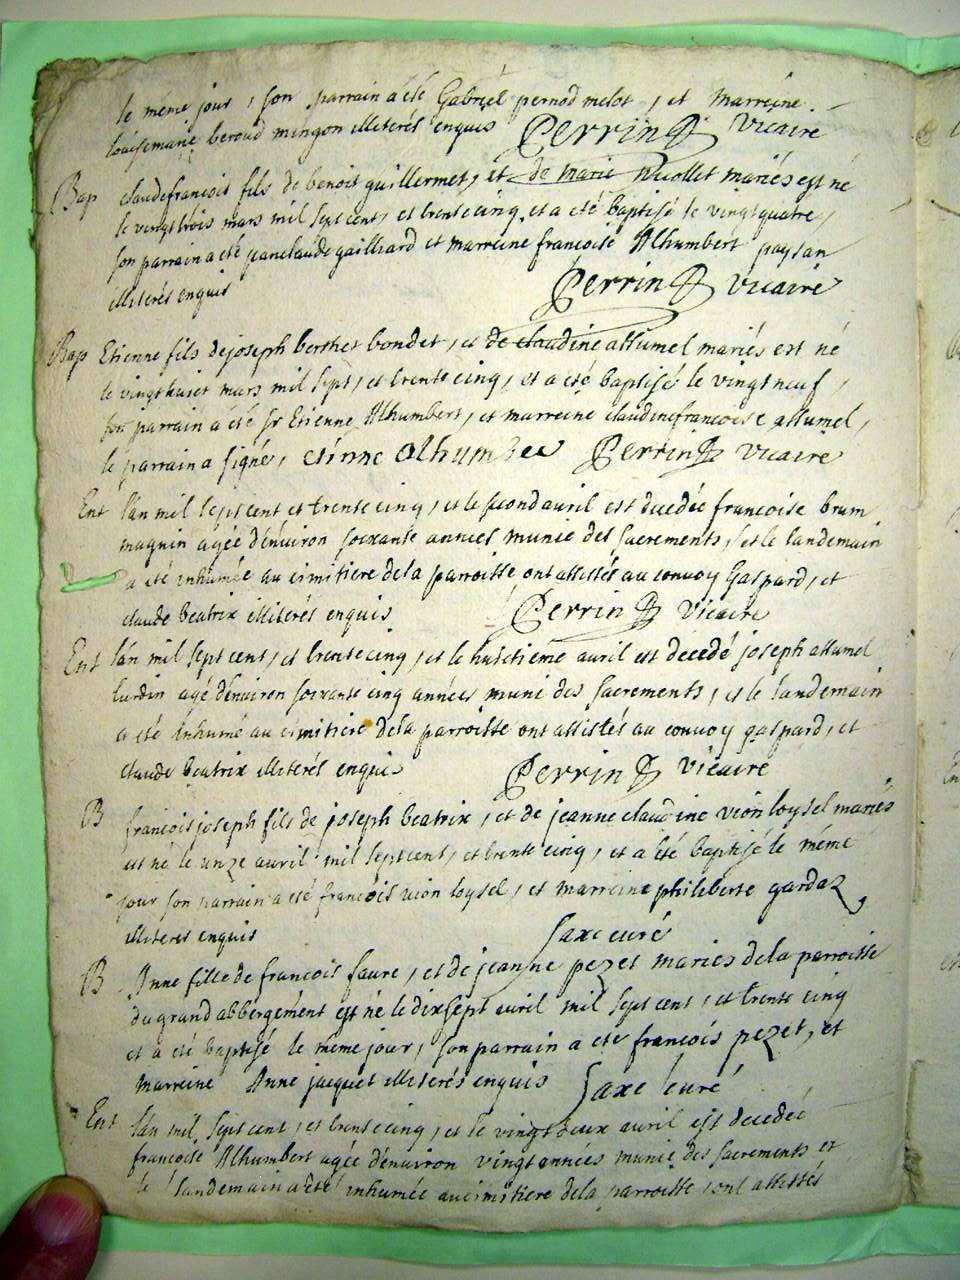 le même jour, son parrain a été Gabriel pernod melot, et marreine
louise marie beroud mingon illiterés enquis Perrin Vicaire
Bap claude françois fils de benoit guillermet, et de marie nicollet mariés est né
le vingt trois mars mil sept cent, et trente cinq, et a été baptisé le vingt quatre,
son parrain a été jean claude gailliard et marreine francoise Alhumbert paysan
illiterés enquis Perrin Vicaire
Bap Etienne fils de joseph berthet bondet, et de claudine allumel mariés est né
le vingt huict mars mil sept, et trente cinq, et a été baptisé le vingt neuf,
son parrain a été sr Etienne Alhumbert, et marreine claudine francoise allumel,
le parrain a signé, etinne Perrin Vicaire
Ent l'an mil sept cent et trente cinq, et le second avril est decedée francoise brun
magnin agée d'environ soixante années munie des sacrements, et le landemain
a été inhumée au cimitiere de la parroisse, ont assistés au convoy Gaspard, et
claude beatrix illiterés enquis Perrin Vicaire
Ent l'an mil sept cent, et trente cinq, et le huictieme avril est decedé joseph allumel
lurdin agé d'environ soixante cinq années muni des sacrements, et le landemain
a été inhumé au cimitiere de la parroisse ont assistés au convoy gaspard, et
claude beatrix illiterés enquis Perrin Vicaire
B francois joseph fils de joseph beatrix, et de jeanne claudine vion loysel mariés
est né le unze avril mil sept cent, et trente cinq, et a été baptisé le même
jour son parrain a été francois vion loysel, et marreine philiberte gardaz,
illiterés enquis saxe curé
B Anne fille de francois faure, et de jeanne pezet mariés de la parroisse
du grand abbergement est né le dix sept avril mil sept cent, et trente cinq
et a été baptisé le même jour, son parrain a été francois pezet, et
marreine Anne jacquet illiterés enquis Saxe curé
Ent l'an mil sept cent, et trente cinq, et le vingt deux avril est decedée
francoise Alhumbert agée d'environ vingt années munie des sacrements et
le landemain a été inhumée au cimitiere de la parroisse, ont assistés